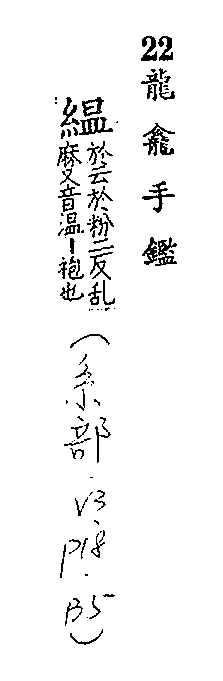 22龍龕手鑑
縕於云於粉二反乱
麻又音温—袍也
(糸部.V3
P18.
B5)